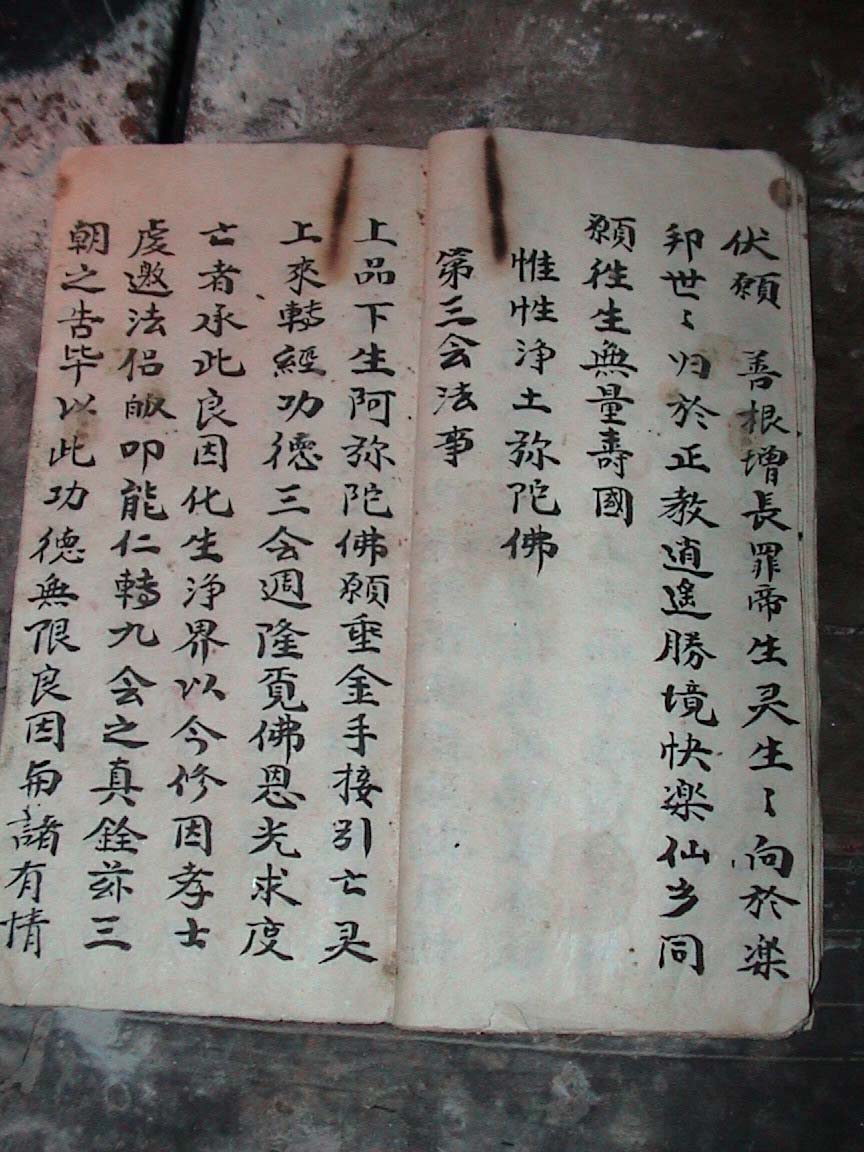 伏願 善根增長罪帝生灵生〻向於楽
邦世〻归於正教逍遥勝境快楽仙乡同
願徃生無量壽國
惟性浄土弥陀佛
第三会法事
上品下生阿弥陀佛願垂金手接引亡灵
上來轉經功德三会週隆覔佛恩光求度
亡者承此良因化生浄界以今修因孝士
虔邀法侣皈叩能仁轉九会之真銓兹三
朝之告毕以此功德無限良因与諸有情